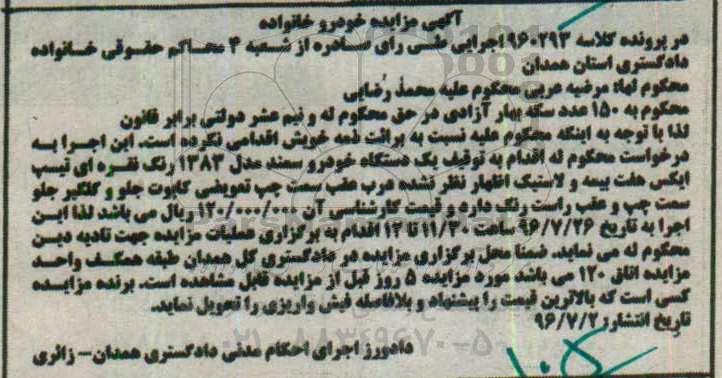 آگهی مزایده خودرو خانواده
در پرونده کلاسه ۹۶۰۲۹۳ اجرایی طی رای صادره از شعبه ۴ محاکم حقوقی خانواده
دادگستری استان همدان
محکوم لها: مرضیه عربی محکوم علیه محمد رضایی
محکوم به ۱۵۰ عدد سکه بهار آزادی در حق محکوم له و نیم عشر دولتی برابر قانون
لذا با توجه به اینکه محکوم علیه نسبت به برائت ذمه خویش اقدامی نکرده است. این اجرا به
درخواست محکوم له اقدام به توقیف یک دستگاه خودرو سمند مدل ۱۳۸۳ رنگ نقره ای تیپ
ایکس هفت بیمه و لاستیک اظهار نظر نشده درب عقب سمت چپ تعویضی کاپوت جلو و گلگیر جلو
سمت چپ و عقب راست رنگ دارد و قیمت کارشناسی آن ۱۲۰/۰۰۰/۰۰۰ ریال می باشد لذا این
اجرا به تاریخ ۹۶/۷/۲۶ ساعت ۱۱/۳۰ تا ۱۲ اقدام به برگزاری عملیات مزایده جهت تادیه دین
محکوم له می نماید. ضمنا محل برگزاری مزایده در دادگستری کل همدان طبقه همکف واحد
مزایده اتاق ۱۲۰ می باشد مورد مزایده ۵ روز قبل از مزایده قابل مشاهده است. برنده مزایده
کسی است که بالاترین قیمت را پیشنهاد و بلافاصله فیش واریزی را تحویل نماید.
تاریخ انتشار: ۹۶/۷/۲
دادورز اجرای احکام مدنی دادگستری همدان- زائری